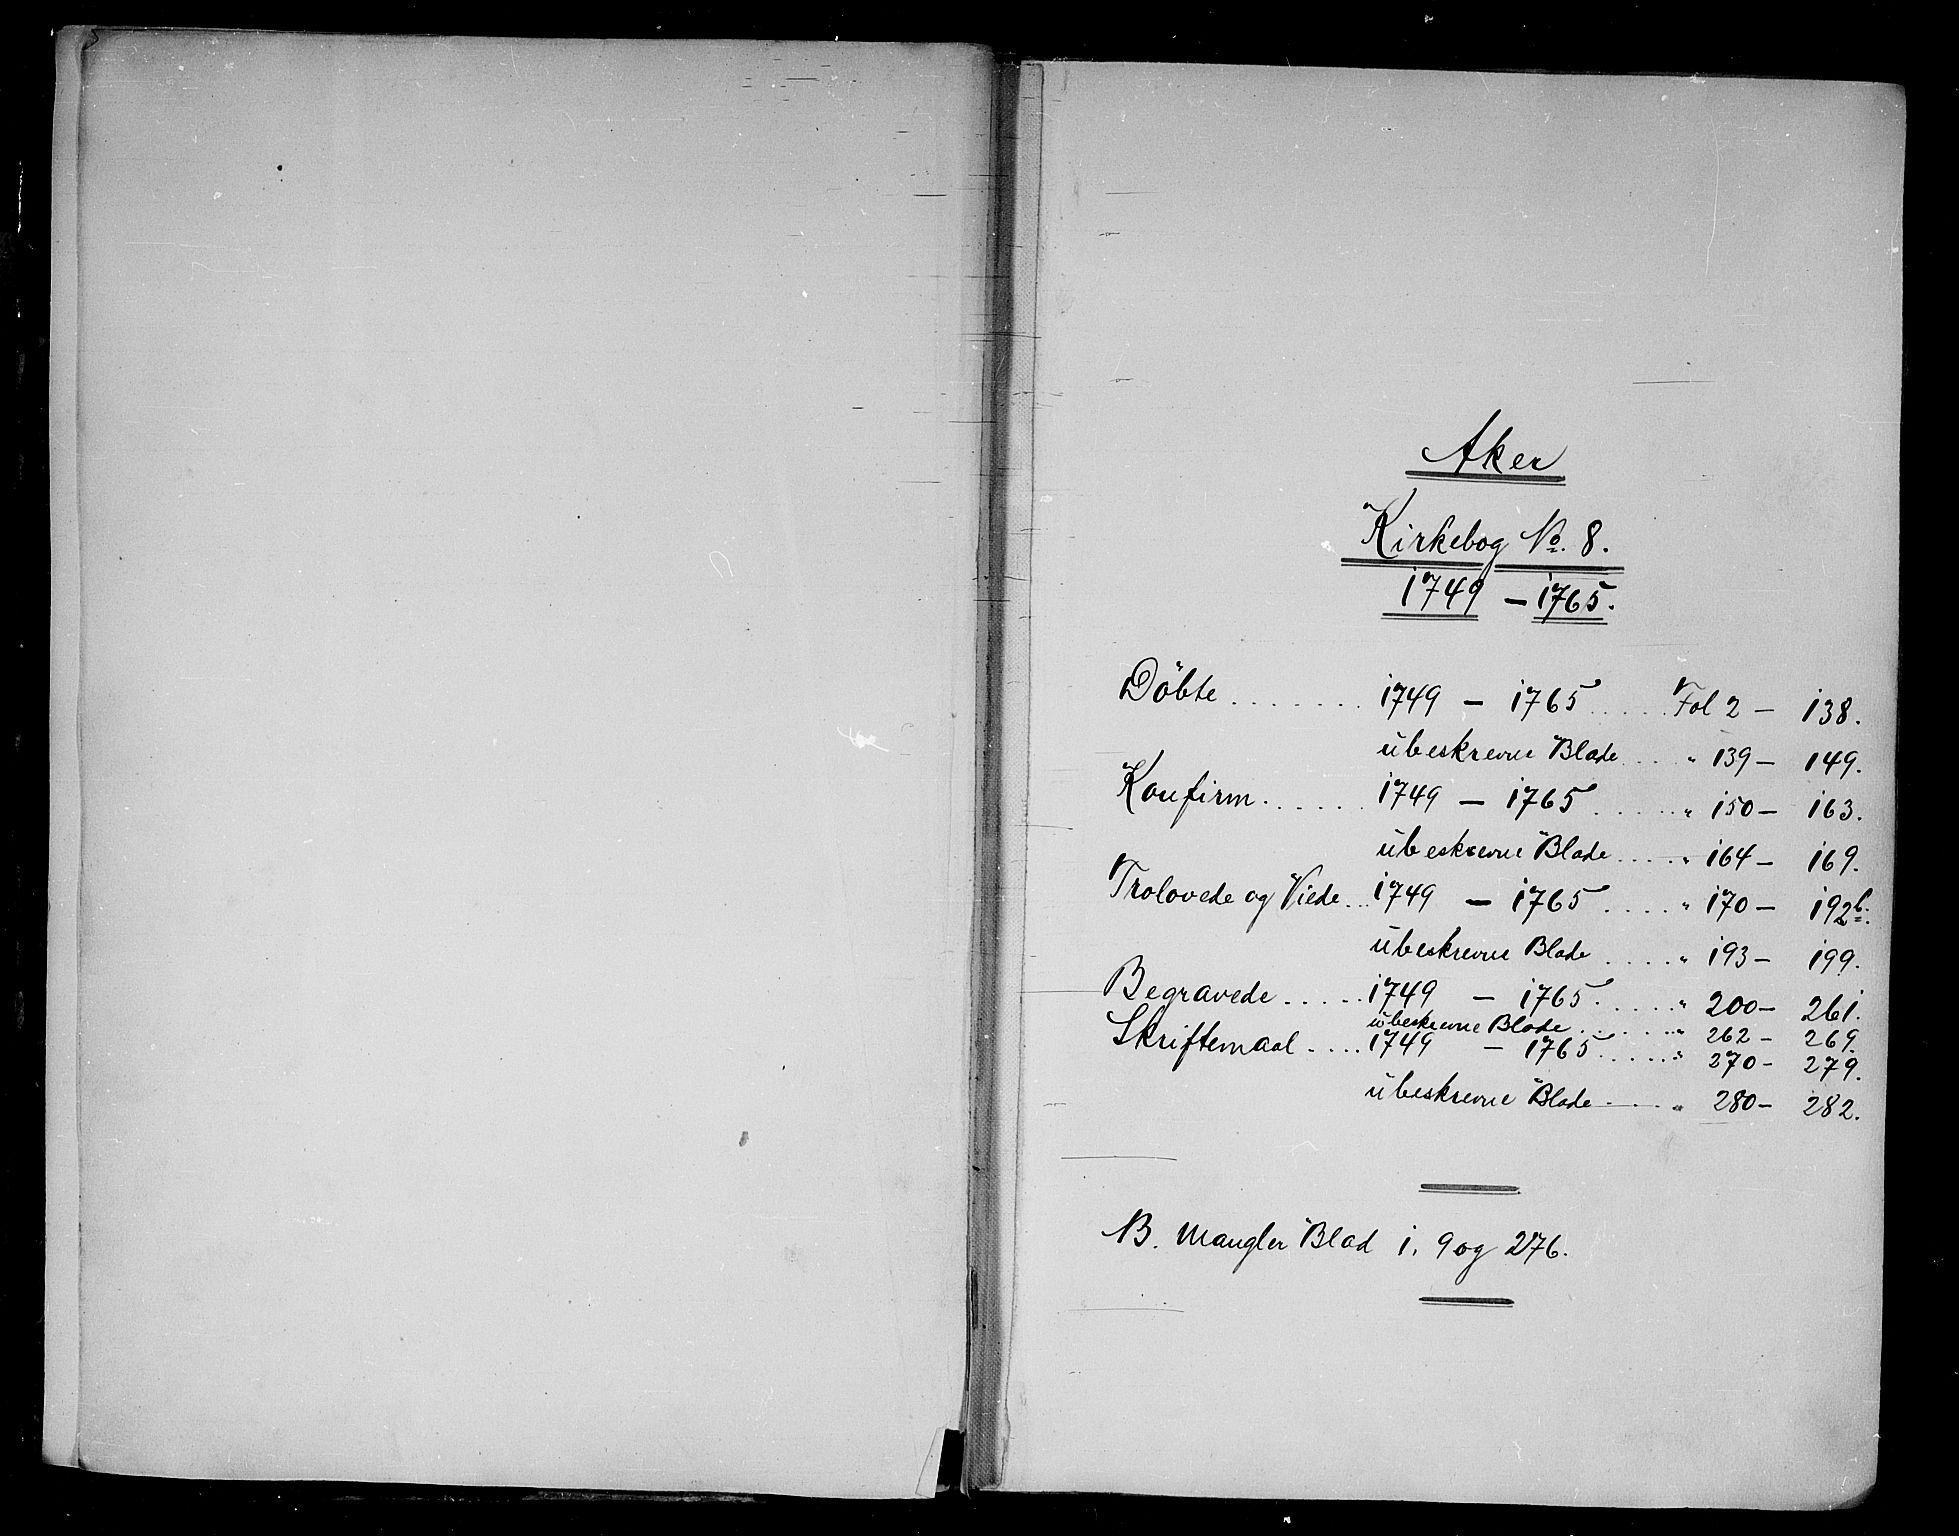 Aker
Kirkebog No. 8.
1749 – 1765.
Döbte ....... 1749 – 1765 ..... Fol 2 – 138.
ubeskrevne Blade .... " 139 – 149.
Konfirm. ..... 1749 – 1765 ..... " 150 – 163.
ubeskrevne Blade .... " 164 – 169.
Trolovede og Viede ... 1749 – 1765 .... " 170 – 192b.
ubeskrevne Blade .... " 193 – 199.
Begravede ..... 1749 – 1765. .... " 200 – 261.
ubeskrevne Blade ...... " 262 – 269.
Skriftemaal .... 1749 – 1765 ..... " 270 – 279.
ubeskrevne Blade .... " 280 – 282.
NB. Mangler Blad 1, 9 og 276.